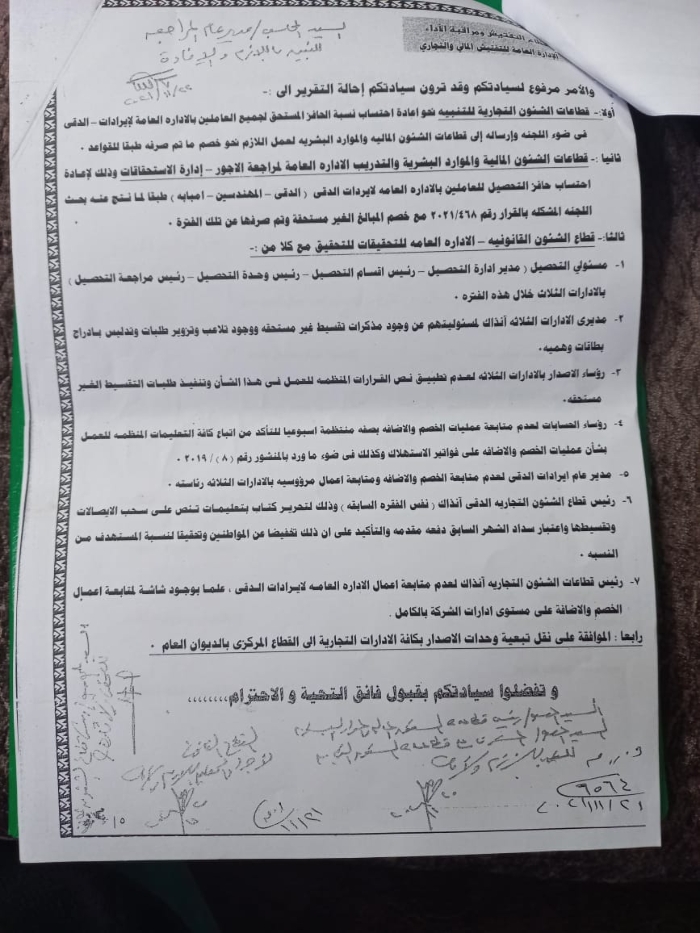 التفتيش ومراقبة الاداء
الادارة العامة للتفتيش المالي والتجاري
السيد المحاسب / مدير عام المراجعه
للتنبيه باللازم والإفادة
والأمر مرفوع لسيادتكم وقد ترون سيادتكم إحالة التقرير الى :-
أولا:- قطاعات الشئون التجارية للتنبيه نحو اعادة احتساب نسبة الحافز المستحق لجميع العاملين بالاداره العامة لإيرادات – الدقى
فى ضوء اللجنه وإرساله إلى قطاعات الشئون الماليه والموارد البشريه لعمل اللازم نحو خصم ما تم صرفه طبقا للقواعد .
ثانيا :- قطاعات الشئون المالية والموارد البشرية والتدريب الاداره العامة لمراجعة الاجور – إدارة الاستحقاقات وذلك لإعادة
احتساب حافز التحصيل للعاملين بالاداره العامه لايردات الدقى ( الدقى – المهندسين – امبابه ) طبقا لما نتج عنه بحث
اللجنه المشكله بالقرار رقم ٢٠٢١/٤٦٨ مع خصم المبالغ الغير مستحقة وتم صرفها عن تلك الفترة .
ثالثا:- قطاع الشئون القانونيه – الاداره العامه للتحقيقات للتحقيق مع كلا من :-
١- مسئولي التحصيل ( مدير ادارة التحصيل – رئيس اقسام التحصيل – رئيس وحدة التحصيل – رئيس مراجعة التحصيل )
بالادارات الثلاث خلال هذه الفتره .
٢- مديرى الادارات الثلاثه آنذاك لمسئوليتهم عن وجود مذكرات تقسيط غير مستحقه ووجود تلاعب وتزوير طلبات وتدليس بادراج
بطاقات وهميه.
٣- رؤساء الاصدار بالادارات الثلاثه لعدم تطبيق نص القرارات المنظمه للعمل فى هذا الشأن وتنفيذ طلبات التقسيط الغير
مستحقه.
٤- رؤساء الحسابات لعدم متابعة عمليات الخصم والاضافه بصفه منتظمة اسبوعيا للتأكد من اتباع كافة التعليمات المنظمه للعمل
بشأن عمليات الخصم والاضافه على فواتير الاستهلاك وكذلك فى ضوء ما ورد بالمنشور رقم (٨) / ٢٠١٩ .
٥- مدير عام ايرادات الدقى لعدم متابعة الخصم والاضافه ومتابعة اعمال مرؤوسيه بالادارات الثلاثه رئاسته .
٦- رئيس قطاع الشئون التجاريه الدقى آنذاك ( نفس الفقره السابقه ) وذلك لتحرير كتاب بتعليمات تنص على سحب الايصالات
وتقسيطها واعتبار سداد الشهر السابق دفعه مقدمه والتأكيد على ان ذلك تخفيضا عن المواطنين وتحقيقا لنسبة المستهدف من
النسبه .
٧- رئيس قطاعات الشئون التجاريه آنذاك لعدم متابعة اعمال الاداره العامه لايرادات الدقى ، علما بوجود شاشة لمتابعة اعمال
الخصم والاضافة على مستوى ادارات الشركة بالكامل .
رابعا : الموافقة على نقل تبعية وحدات الاصدار بكافة الادارات التجارية الى القطاع المركزى بالديوان العام .
و تفضلوا سيادتكم بقبول فائق التحية و الاحترام........
٩٥٦٤
٢٠٢١/١١/٢١
١١/٢١